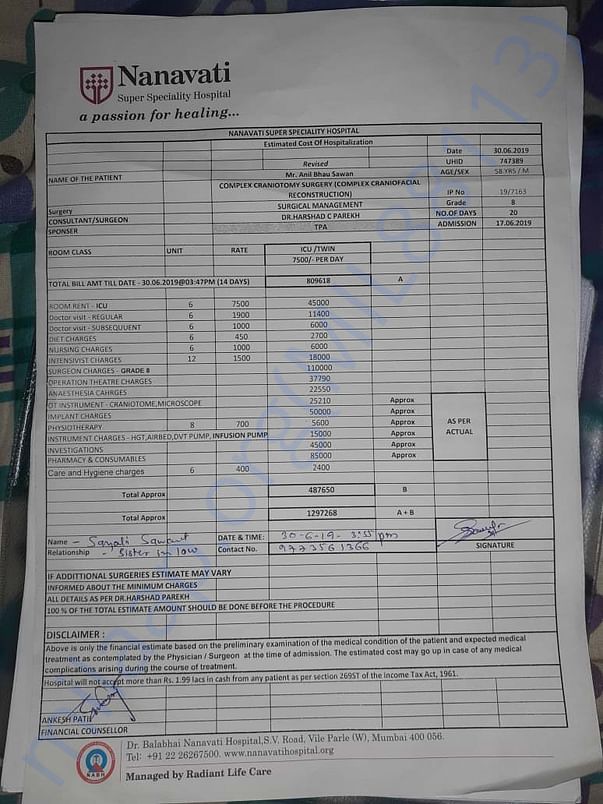 Nanavati
Super Speciality Hospital
a passion for healing...
NANAVATI SUPER SPECIALITY HOSPITAL
Estimated Cost Of Hospitalization
Date 30.06.2019
Revised UHID 747389
NAME OF THE PATIENT Mr. Anil Bhau Sawan AGE/SEX 58 YRS / M
Surgery COMPLEX CRANIOTOMY SURGERY (COMPLEX CRANIOFACIAL RECONSTRUCTION) IP No 19/7163
SURGICAL MANAGEMENT Grade 8
CONSULTANT/SURGEON DR.HARSHAD C PAREKH NO.OF DAYS 20
SPONSER TPA ADMISSION 17.06.2019
ROOM CLASS UNIT RATE ICU /TWIN
7500/- PER DAY
TOTAL BILL AMT TILL DATE - 30.06.2019@03:47PM (14 DAYS) 809618 A
ROOM RENT - ICU 6 7500 45000
Doctor visit - REGULAR 6 1900 11400
Doctor visit - SUBSEQUUENT 6 1000 6000
DIET CHARGES 6 450 2700
NURSING CHARGES 6 1000 6000
INTENSIVIST CHARGES 12 1500 18000
SURGEON CHARGES - GRADE 8 110000
OPERATION THEATRE CHARGES 37790
ANAESTHESIA CAHRGES 22550
OT INSTRUMENT - CRANIOTOME,MICROSCOPE 25210 Approx
IMPLANT CHARGES 50000 Approx
PHYSIOTHERAPY 8 700 5600 Approx
INSTRUMENT CHARGES - HGT,AIRBED,DVT PUMP, INFUSION PUMP 15000 Approx
INVESTIGATIONS 45000 Approx
PHARMACY & CONSUMABLES 85000 Approx
AS PER
ACTUAL
Care and Hygiene charges 6 400 2400
Total Approx 487650 B
Total Approx 1297268 A + B
Name - Sayali Sawant DATE & TIME: 30-6-19- 3:55 pm
Relationship - Sister in law Contact No. 9773561366
SIGNATURE
IF ADDITIONAL SURGERIES ESTIMATE MAY VARY
INFORMED ABOUT THE MINIMUM CHARGES
ALL DETAILS AS PER DR.HARSHAD PAREKH
100 % OF THE TOTAL ESTIMATE AMOUNT SHOULD BE DONE BEFORE THE PROCEDURE
DISCLAIMER :
Above is only the financial estimate based on the preliminary examination of the medical condition of the patient and expected medical
treatment as contemplated by the Physician / Surgeon at the time of admission. The estimated cost may go up in case of any medical
complications arising during the course of treatment.
Hospital will not accept more than Rs. 1.99 lacs in cash from any patient as per section 269ST of the Income Tax Act, 1961.
ANKESH PATIL
FINANCIAL COUNSELLOR
Dr. Balabhai Nanavati Hospital,S.V. Road, Vile Parle (W), Mumbai 400 056.
Tel: +91 22 26267500. www.nanavatihospital.org
NABH
Managed by Radiant Life Care